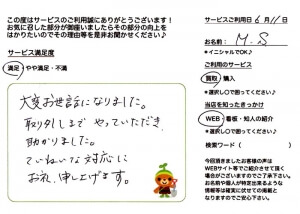 この度はサービスのご利用誠にありがとうございます！
お気に召した部分が御座いましたらその部分の向上を
はかりたいのでその理由等を是非お聞かせください♪
サービス満足度
満足・やや満足・不満
大変お世話になりました。
取り外しまでやっていただき、
助かりました。
ていねいな対応に
お礼、申し上げます。
サービスご利用日 6月11日
お名前： M.S
*イニシャルでOK♪
ご利用のサービス
買取・購入
*選択し〇で囲ってください♪
当店を知ったきっかけ
WEB・看板・知人の紹介
*選択し〇で囲ってください♪
検索ワード（　　　）
今回頂きましたお客様の声は
WEBサイト等でご紹介させて頂く
場合がございますのでご了承下さい。
お名前や個人が特定出来るような
情報等は確実に伏せての掲載と
なりますのでご安心下さい。